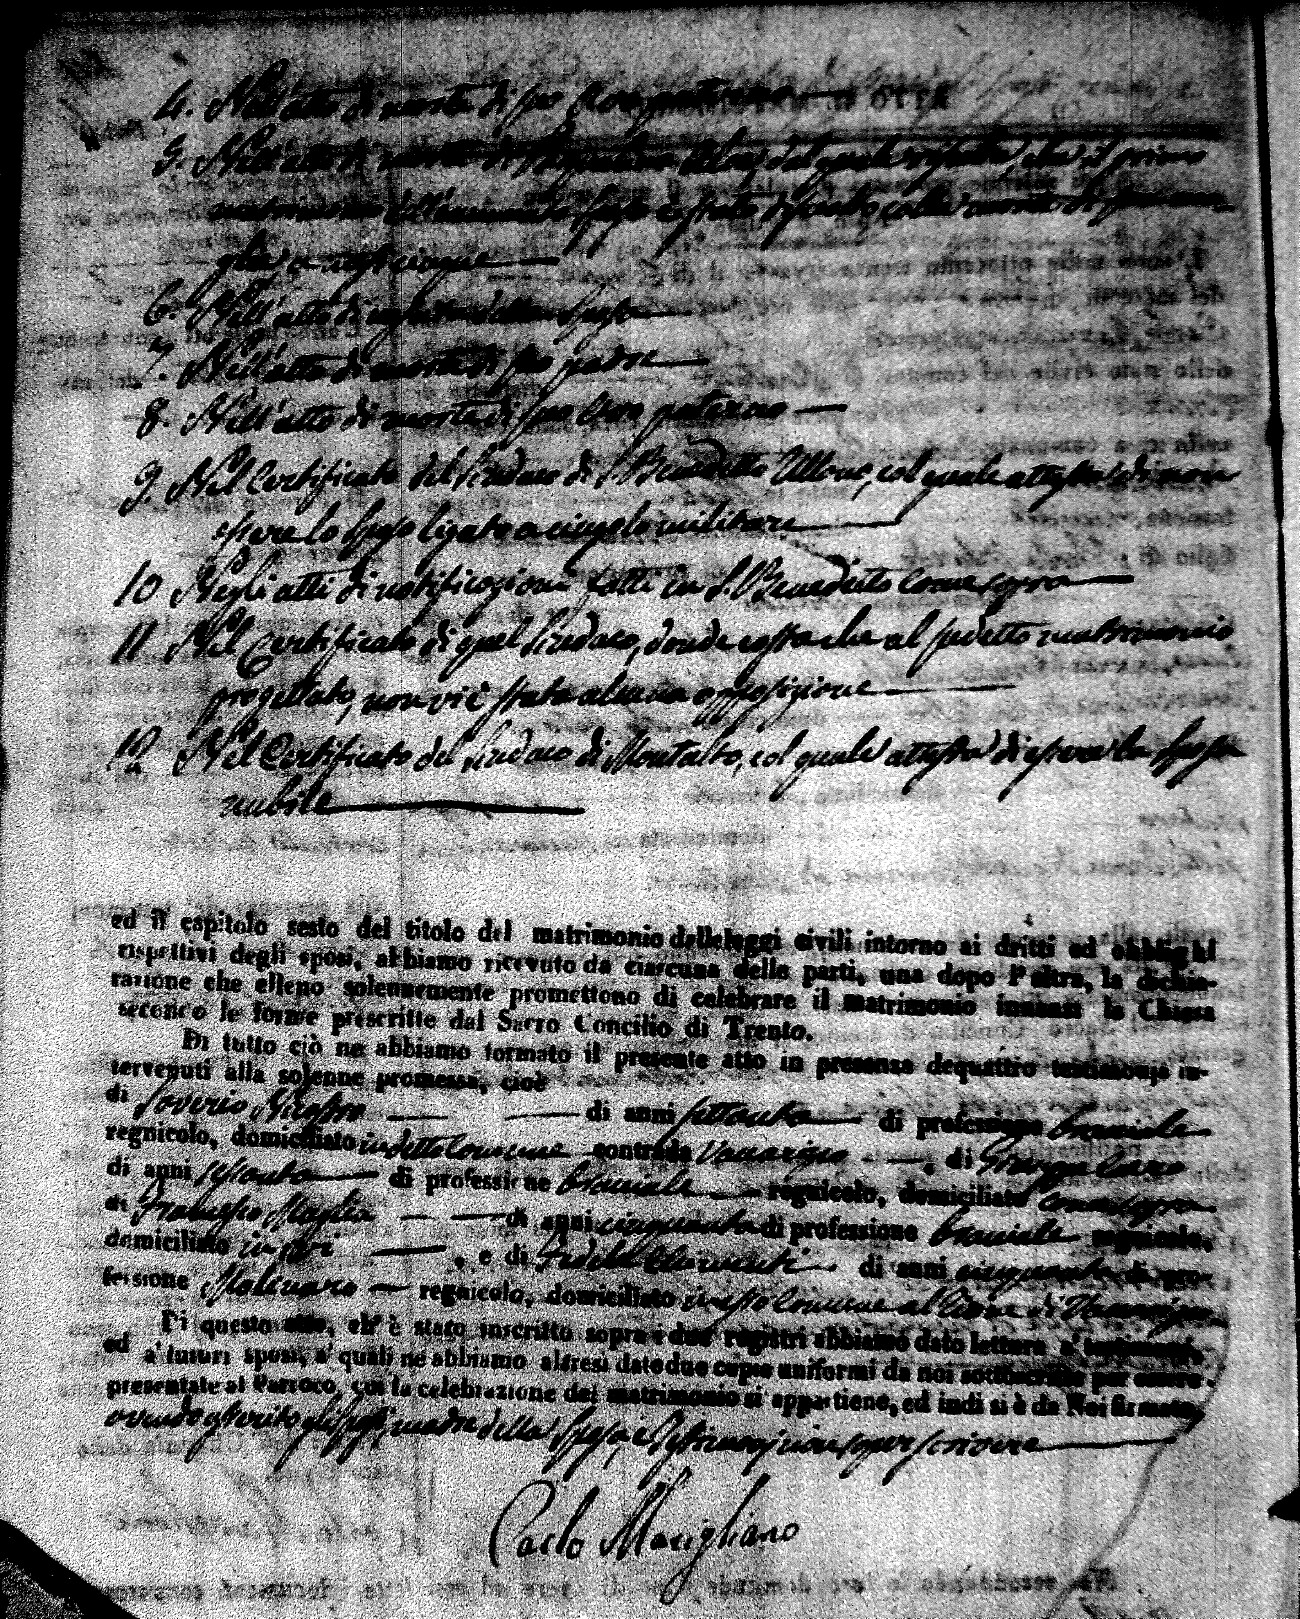 4. Nell'atto di morte di suo avo paterno
5. Nell'atto di morte di quale risulta, che il primo
matrimonio dell'enunciato sposo è stato disciolto colla morte di sua mo-
glie
6. Nell'atto di nascita della sposa
7. Nell'atto di morte di suo padre
8. Nell'atto di morte di suo avo paterno
9. Nel Certificato del Sindaco di S. Benedetto Ullano, col quale attesta di non
essere lo sposo ligato a vincolo militare
10 Negli atti di notificazioni fatti in S. Benedetto come sopra
11 Nel Certificato di quel Sindaco, donde costa che al sudetto matrimonio
progettato, non vi è stata alcuna opposizione
12 Nel Certificato del Sindaco di Montalto, col quale attesta di essere la sposa
nubile
ed il capitolo sesto del titolo del matrimonio delle leggi civili intorno ai dritti ed obblighi
rispettivi degli sposi, abbiamo ricevuto da ciascuna delle parti, una dopo l'altra, la dichia-
razione che elleno solennemente promettono di celebrare il matrimonio innanzi la Chiesa
secondo le forme prescritte dal Sacro Concilio di Trento.
Di tutto ciò ne abbiamo formato il presente atto in presenza de quattro testimonj in-
tervenuti alla solenne promessa, cioè
di Soverio di anni settanta di professione bracciale
regnicolo, domiciliato in detto Comune contrada Vaccarizzo, di
di anni sessanta di professione bracciale regnicolo, domiciliato come sopra
di Francesco Maglia di anni cinquanta di professione bracciale regnicolo,
domiciliato in ivi, e di Fedele Chimenti di anni cinquanta di pro-
fessione Molinaro regnicolo, domiciliato in esso Comune al di
Di questo atto, ch'è stato inscritto sopra i due registri abbiamo dato lettura a' testimonj,
ed a' futuri sposi, a' quali ne abbiamo altresì dato due copie uniformi da noi sottoscritte per essere
presentate al Parroco, cui la celebrazione del matrimonio si appartiene, ed indi si è da Noi firmato,
avendo asserito gli sposi, madre della sposa, e testimonj non saper scrivere
Carlo Marigliano